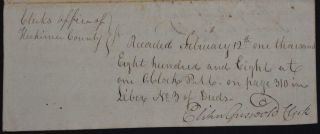 Clerks office of
Herkimer County } ss.
Recorded February 12th one thousand
Eight hundred and Eight at
one OClock P.M. on page 310 in
Liber No. 3 of Deeds.
Elihu Griswold Clerk